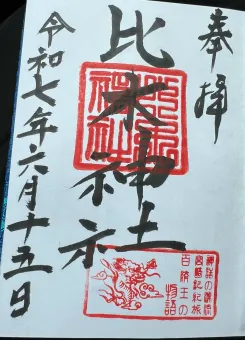 奉拝
比木神社
令和七年六月十五日
比木神社
神話の源流
宮崎記紀旅
百済王の
物語